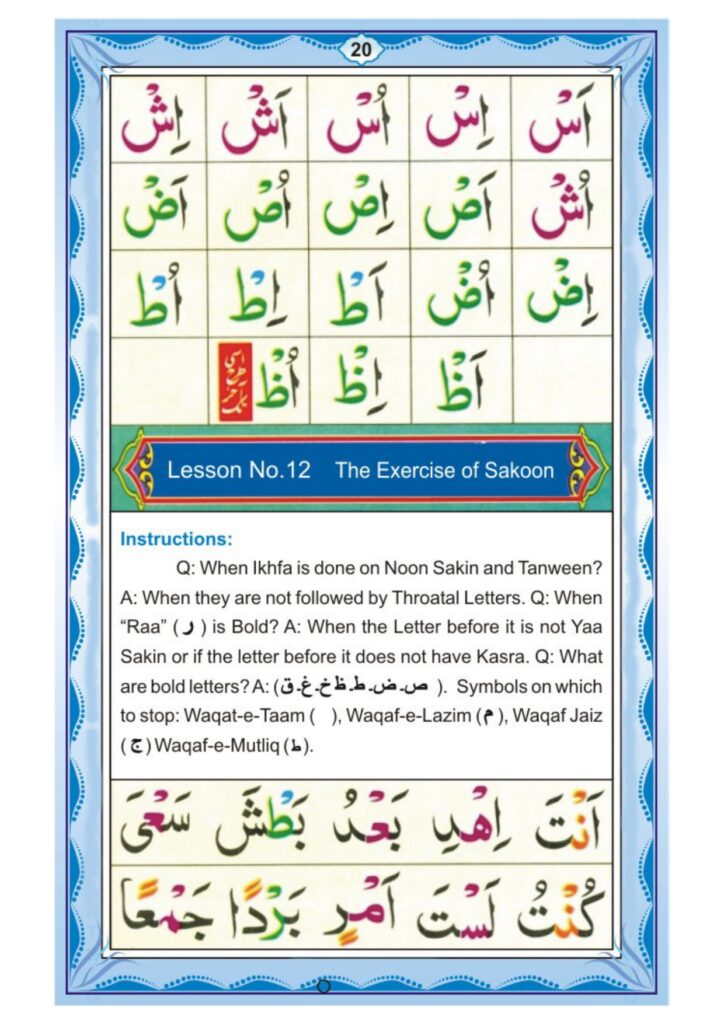 20
اَسْ اِسْ اُسْ اَشْ اِشْ
اُشْ اَصْ اِصْ اُصْ اَضْ
اِضْ اُضْ اَطْ اِطْ اُطْ
اَظْ اِظْ اُظْ
Lesson No.12 The Exercise of Sakoon
Instructions:
Q: When Ikhfa is done on Noon Sakin and Tanween?
A: When they are not followed by Throatal Letters. Q: When
“Raa” ( ر ) is Bold? A: When the Letter before it is not Yaa
Sakin or if the letter before it does not have Kasra. Q: What
are bold letters? A: ( ص۔ض۔ط۔ظ خ۔غ۔ق ). Symbols on which
to stop: Waqat-e-Taam ( ), Waqaf-e-Lazim ( م ), Waqaf Jaiz
( ج ) Waqaf-e-Mutliq ( ط ).
اَنْتَ اِهْدِ بَعْدُ بَطْشَ سَعْىَ
كُنْتُ لَسْتَ اَمْرٍ بَرْدًا جَمْعًا